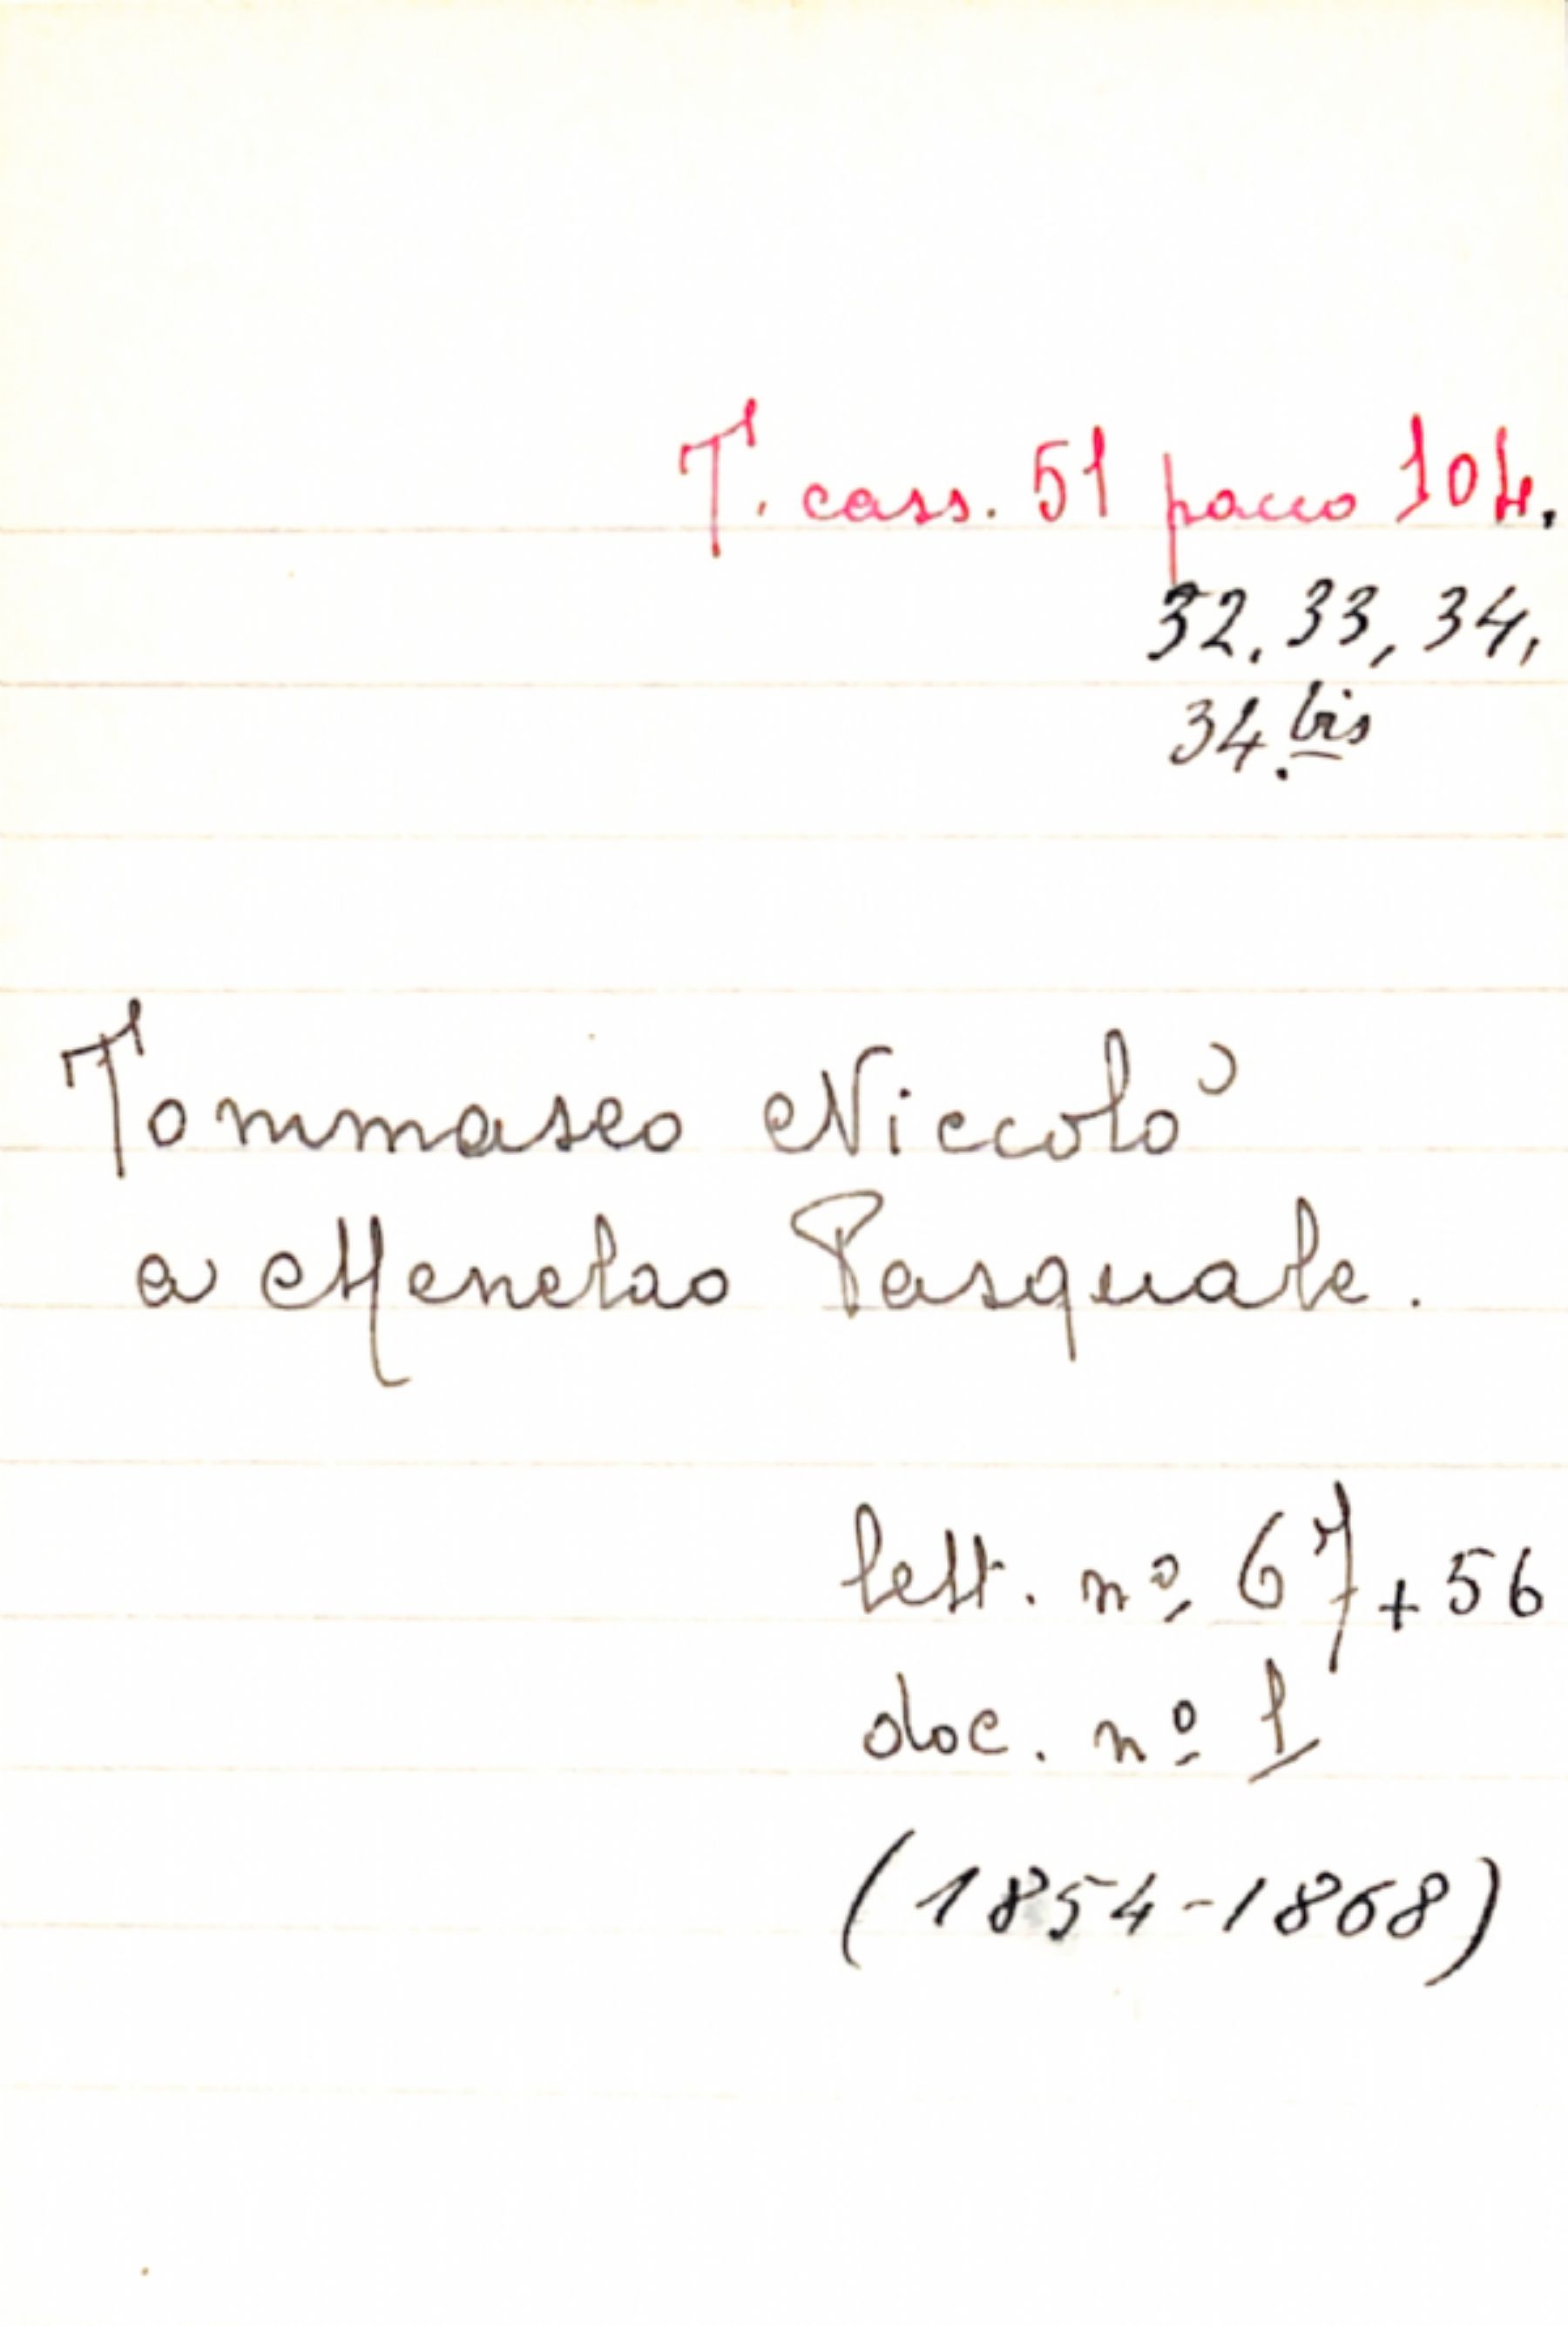 T. cass. 51 pacco 104.
32. 33, 34,
34. bis
Tommaseo Niccolò
a Menelao Pasquale.
lett. nº 67 + 56
doc. nº 1
(1854-1868)